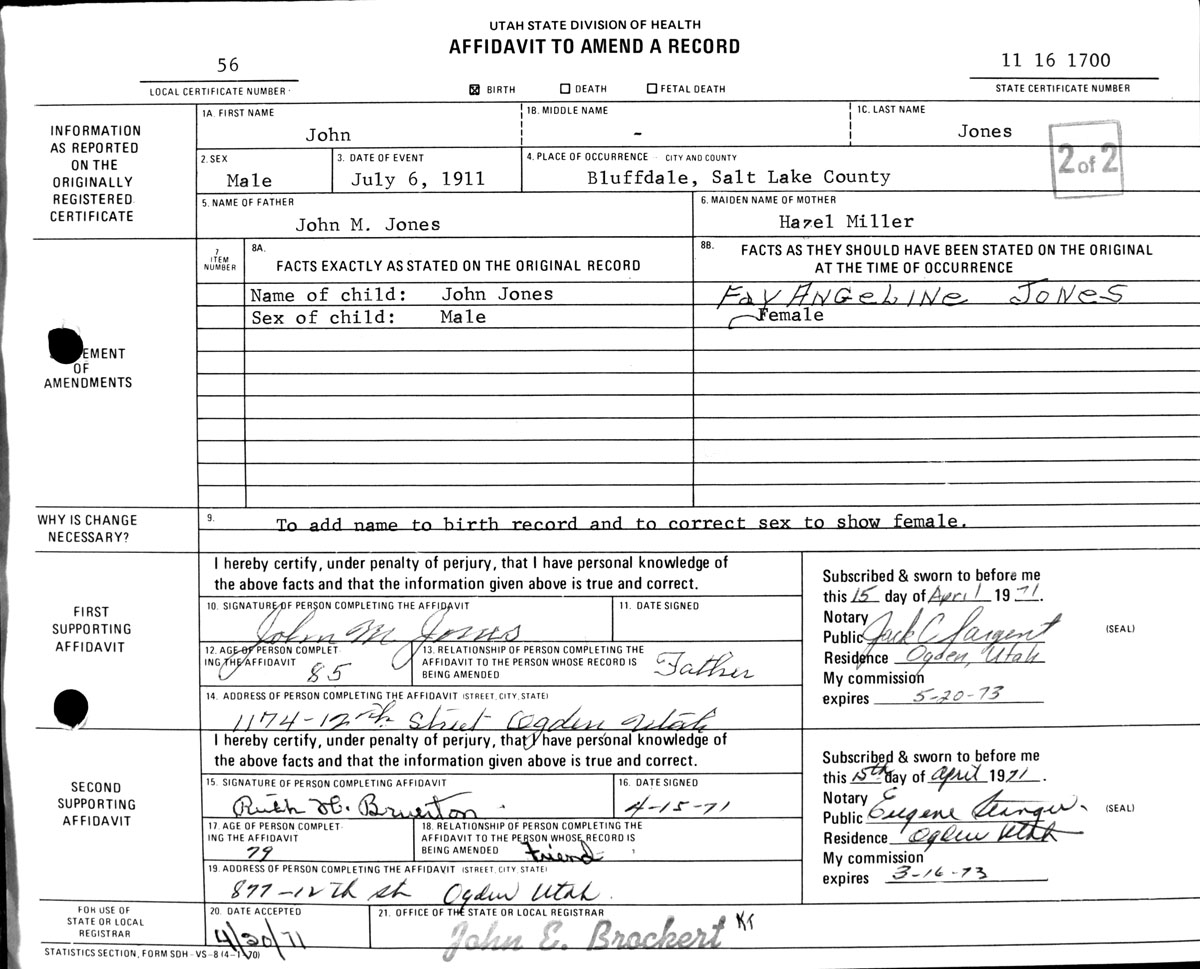 UTAH STATE DIVISION OF HEALTH
AFFIDAVIT TO AMEND A RECORD
56
LOCAL CERTIFICATE NUMBER
☒ BIRTH ☐ DEATH ☐ FETAL DEATH
11 16 1700
STATE CERTIFICATE NUMBER
INFORMATION AS REPORTED ON THE ORIGINALLY REGISTERED CERTIFICATE
1A. FIRST NAME
John
1B. MIDDLE NAME
-
1C. LAST NAME
Jones
2 of 2
2. SEX
Male
3. DATE OF EVENT
July 6, 1911
4. PLACE OF OCCURRENCE - CITY AND COUNTY
Bluffdale, Salt Lake County
5. NAME OF FATHER
John M. Jones
6. MAIDEN NAME OF MOTHER
Hazel Miller
EMENT OF AMENDMENTS
7 ITEM NUMBER
8A. FACTS EXACTLY AS STATED ON THE ORIGINAL RECORD
8B. FACTS AS THEY SHOULD HAVE BEEN STATED ON THE ORIGINAL
AT THE TIME OF OCCURRENCE
Name of child: John Jones
Fay ANGELINE JONES
Sex of child: Male
Female
WHY IS CHANGE NECESSARY?
9. To add name to birth record and to correct sex to show female.
FIRST SUPPORTING AFFIDAVIT
I hereby certify, under penalty of perjury, that I have personal knowledge of
the above facts and that the information given above is true and correct.
10. SIGNATURE OF PERSON COMPLETING THE AFFIDAVIT
John M Jones
11. DATE SIGNED
12. AGE OF PERSON COMPLETING THE AFFIDAVIT
85
13. RELATIONSHIP OF PERSON COMPLETING THE
AFFIDAVIT TO THE PERSON WHOSE RECORD IS
BEING AMENDED
Father
14. ADDRESS OF PERSON COMPLETING THE AFFIDAVIT (STREET, CITY, STATE)
1174-12th Street Ogden Utah
Subscribed & sworn to before me
this 15 day of April 1971.
Notary
Public Jack C Sargent
Residence Ogden, Utah
My commission
expires 5-20-73
(SEAL)
SECOND SUPPORTING AFFIDAVIT
I hereby certify, under penalty of perjury, that I have personal knowledge of
the above facts and that the information given above is true and correct.
15. SIGNATURE OF PERSON COMPLETING AFFIDAVIT
Ruth H. Bruerton
16. DATE SIGNED
4-15-71
17. AGE OF PERSON COMPLETING THE AFFIDAVIT
79
18. RELATIONSHIP OF PERSON COMPLETING THE
AFFIDAVIT TO THE PERSON WHOSE RECORD IS
BEING AMENDED
friend
19. ADDRESS OF PERSON COMPLETING THE AFFIDAVIT (STREET, CITY, STATE)
877-12th st Ogden Utah.
Subscribed & sworn to before me
this 15th day of April 1971.
Notary
Public Eugene
Residence Ogden Utah
My commission
expires 3-16-73
(SEAL)
FOR USE OF STATE OR LOCAL REGISTRAR
20. DATE ACCEPTED
4/20/71
21. OFFICE OF THE STATE OR LOCAL REGISTRAR
John E. Brockert
STATISTICS SECTION, FORM SDH-VS-8 (4-1-70)